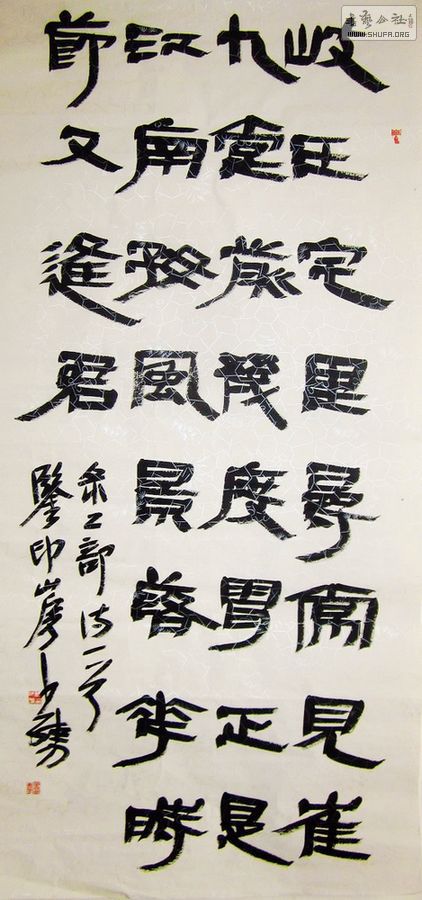 岐王宅里尋常見崔
九堂前幾度聞正是
江南好風景落花時
節又逢君
杜工部诗一首
鑒印山
書藝公社
WWW.SHUFA.ORG